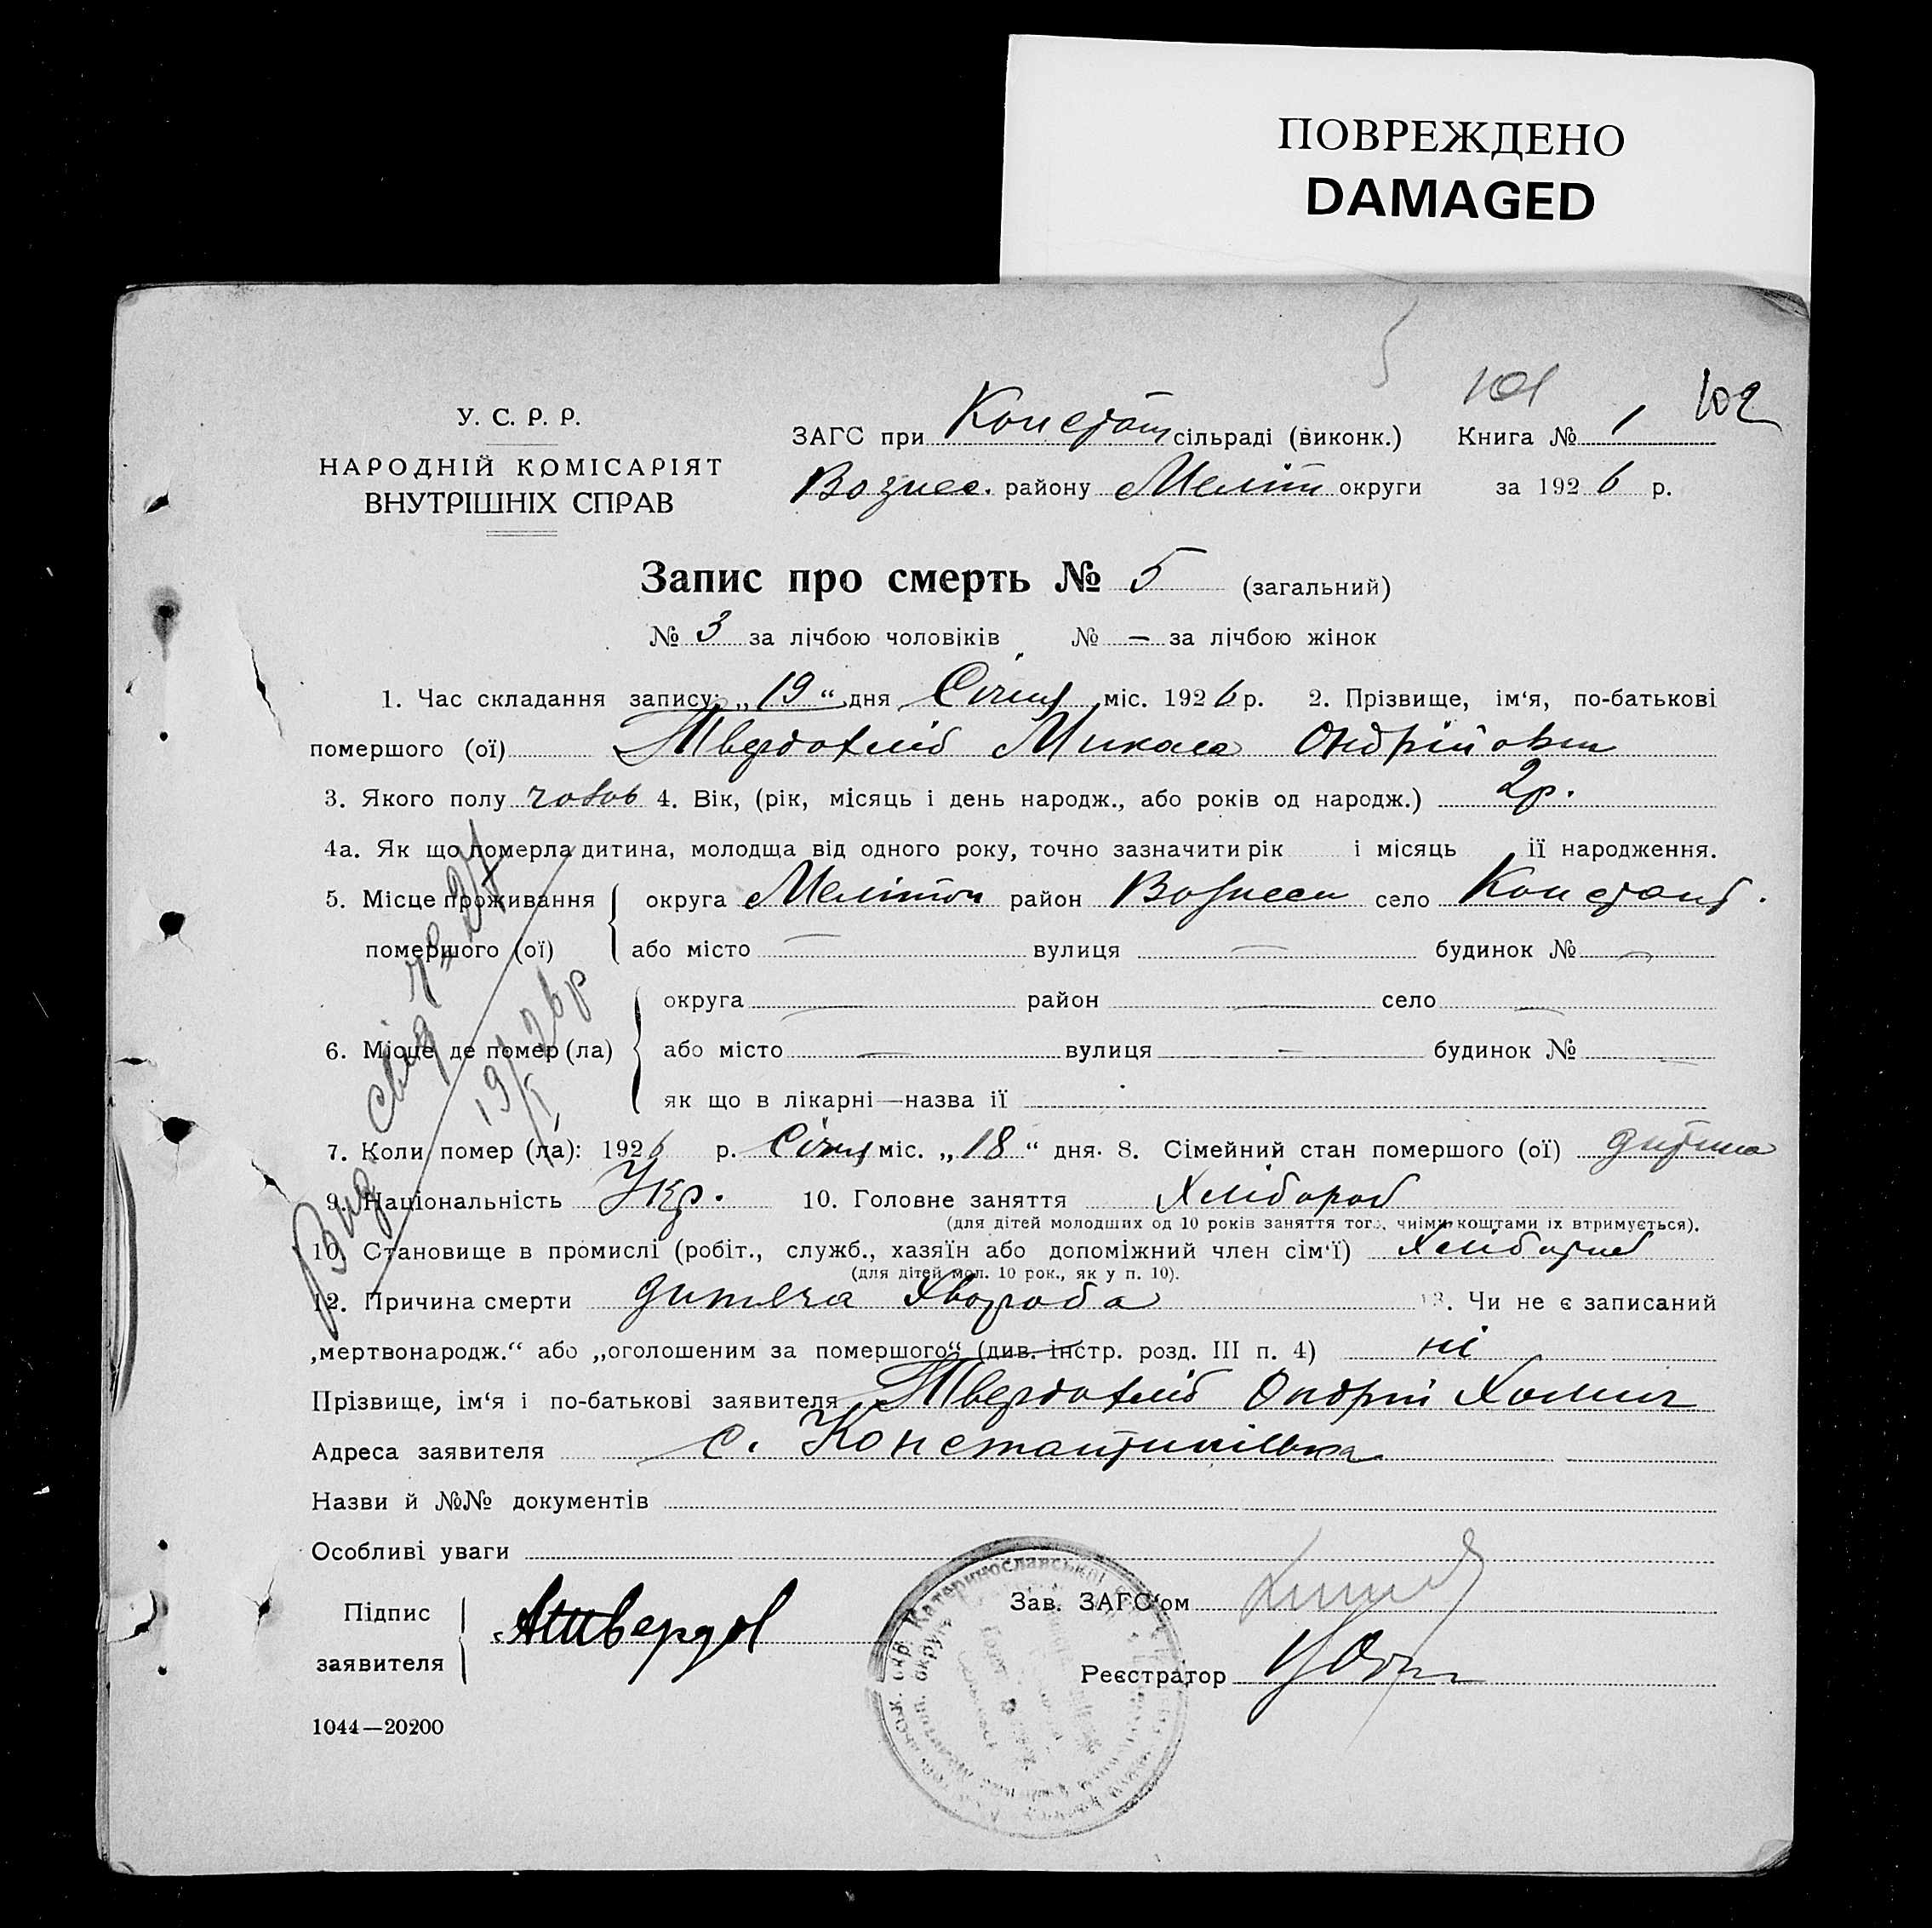 ПОВРЕЖДЕНО
DAMAGED
101 102
У. С. Р. Р.
НАРОДНІЙ КОМІСАРІЯТ
ВНУТРІШНІХ СПРАВ
ЗАГС при Констант сільраді (виконк.) Книга № 1
Вознес. району Меліт округи за 1926 р.
Запис про смерть № 5 (загальний)
№ 3 за лічбою чоловіків № — за лічбою жінок
1. Час складання запису: „19“ дня Січня міс. 1926 р. 2. Прізвище, ім‘я, по-батькові
помершого (ої) Твердохліб Микола Ондрійович
3. Якого полу чолов 4. Вік, (рік, місяць і день народж., або років од народж.) 2р.
4а. Як що померла дитина, молодща від одного року, точно зазначити рік і місяць її народження.
5. Місце проживання помершого (ої) округа Мелітоп район Вознесен село Констант.
або місто — вулиця — будинок № —
6. Місце де помер (ла) округа — район — село —
або місто — вулиця — будинок № —
як що в лікарні—назва її
7. Коли помер (ла): 1926 р. Січня міс. „18“ дня. 8. Сімейний стан помершого (ої) дитина
9. Національність Укр. 10. Головне заняття Хлібороб
(для дітей молодших од 10 років заняття того, чиїми коштами їх втримується).
10. Становище в промислі (робіт., служб., хазяїн або допоміжний член сім‘ї) Хлібороб
(для дітей мол. 10 рок., як у п. 10).
12. Причина смерти дитяча хвороба 13. Чи не є записаний
„мертвонародж.“ або „оголошеним за помершого“ (див. інстр. розд. III п. 4) ні
Прізвище, ім‘я і по-батькові заявителя Твердохліб Ондрій Хомич
Адреса заявителя с. Константинівка
Назви й №№ документів
Особливі уваги
Підпис заявителя АТвердох
Зав. ЗАГС‘ом
Реєстратор
1044—20200
Вид. свід
19/I 26р